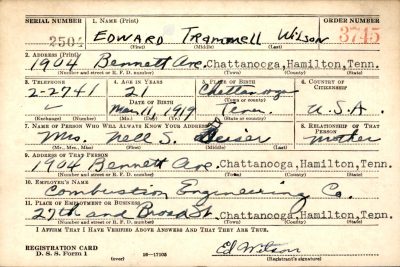 SERIAL NUMBER 1. NAME (Print) ORDER NUMBER
2504 EDWARD Trammell Wilson 3745
(First) (Middle) (Last)
2. ADDRESS (Print)
1904 Bennett Ave. Chattanooga, Hamilton, Tenn.
(Number and street or R. F. D. number) (Town) (County) (State)
3. TELEPHONE 4. AGE IN YEARS 5. PLACE OF BIRTH 6. COUNTRY OF CITIZENSHIP
2-2741 21 Chattanooga
DATE OF BIRTH (Town or county)
May 11, 1919 Tenn. U.S.A.
(Exchange) (Number) (Mo.) (Day) (Yr.) (State or country)
7. NAME OF PERSON WHO WILL ALWAYS KNOW YOUR ADDRESS 8. RELATIONSHIP OF THAT PERSON
Mrs Nell S. mother
(Mr., Mrs., Miss) (First) (Middle) (Last)
9. ADDRESS OF THAT PERSON
1904 Bennett Ave. Chattanooga, Hamilton, Tenn.
(Number and street or R. F. D. number) (Town) (County) (State)
10. EMPLOYER'S NAME
Combustion Engineering Co.
11. PLACE OF EMPLOYMENT OR BUSINESS
27th and Broad St. Chattanooga, Hamilton, Tenn.
(Number and street or R. F. D. number) (Town) (County) (State)
I AFFIRM THAT I HAVE VERIFIED ABOVE ANSWERS AND THAT THEY ARE TRUE.
REGISTRATION CARD
D. S. S. Form 1 (over) 16—17105 Ed Wilson
(Registrant's signature)